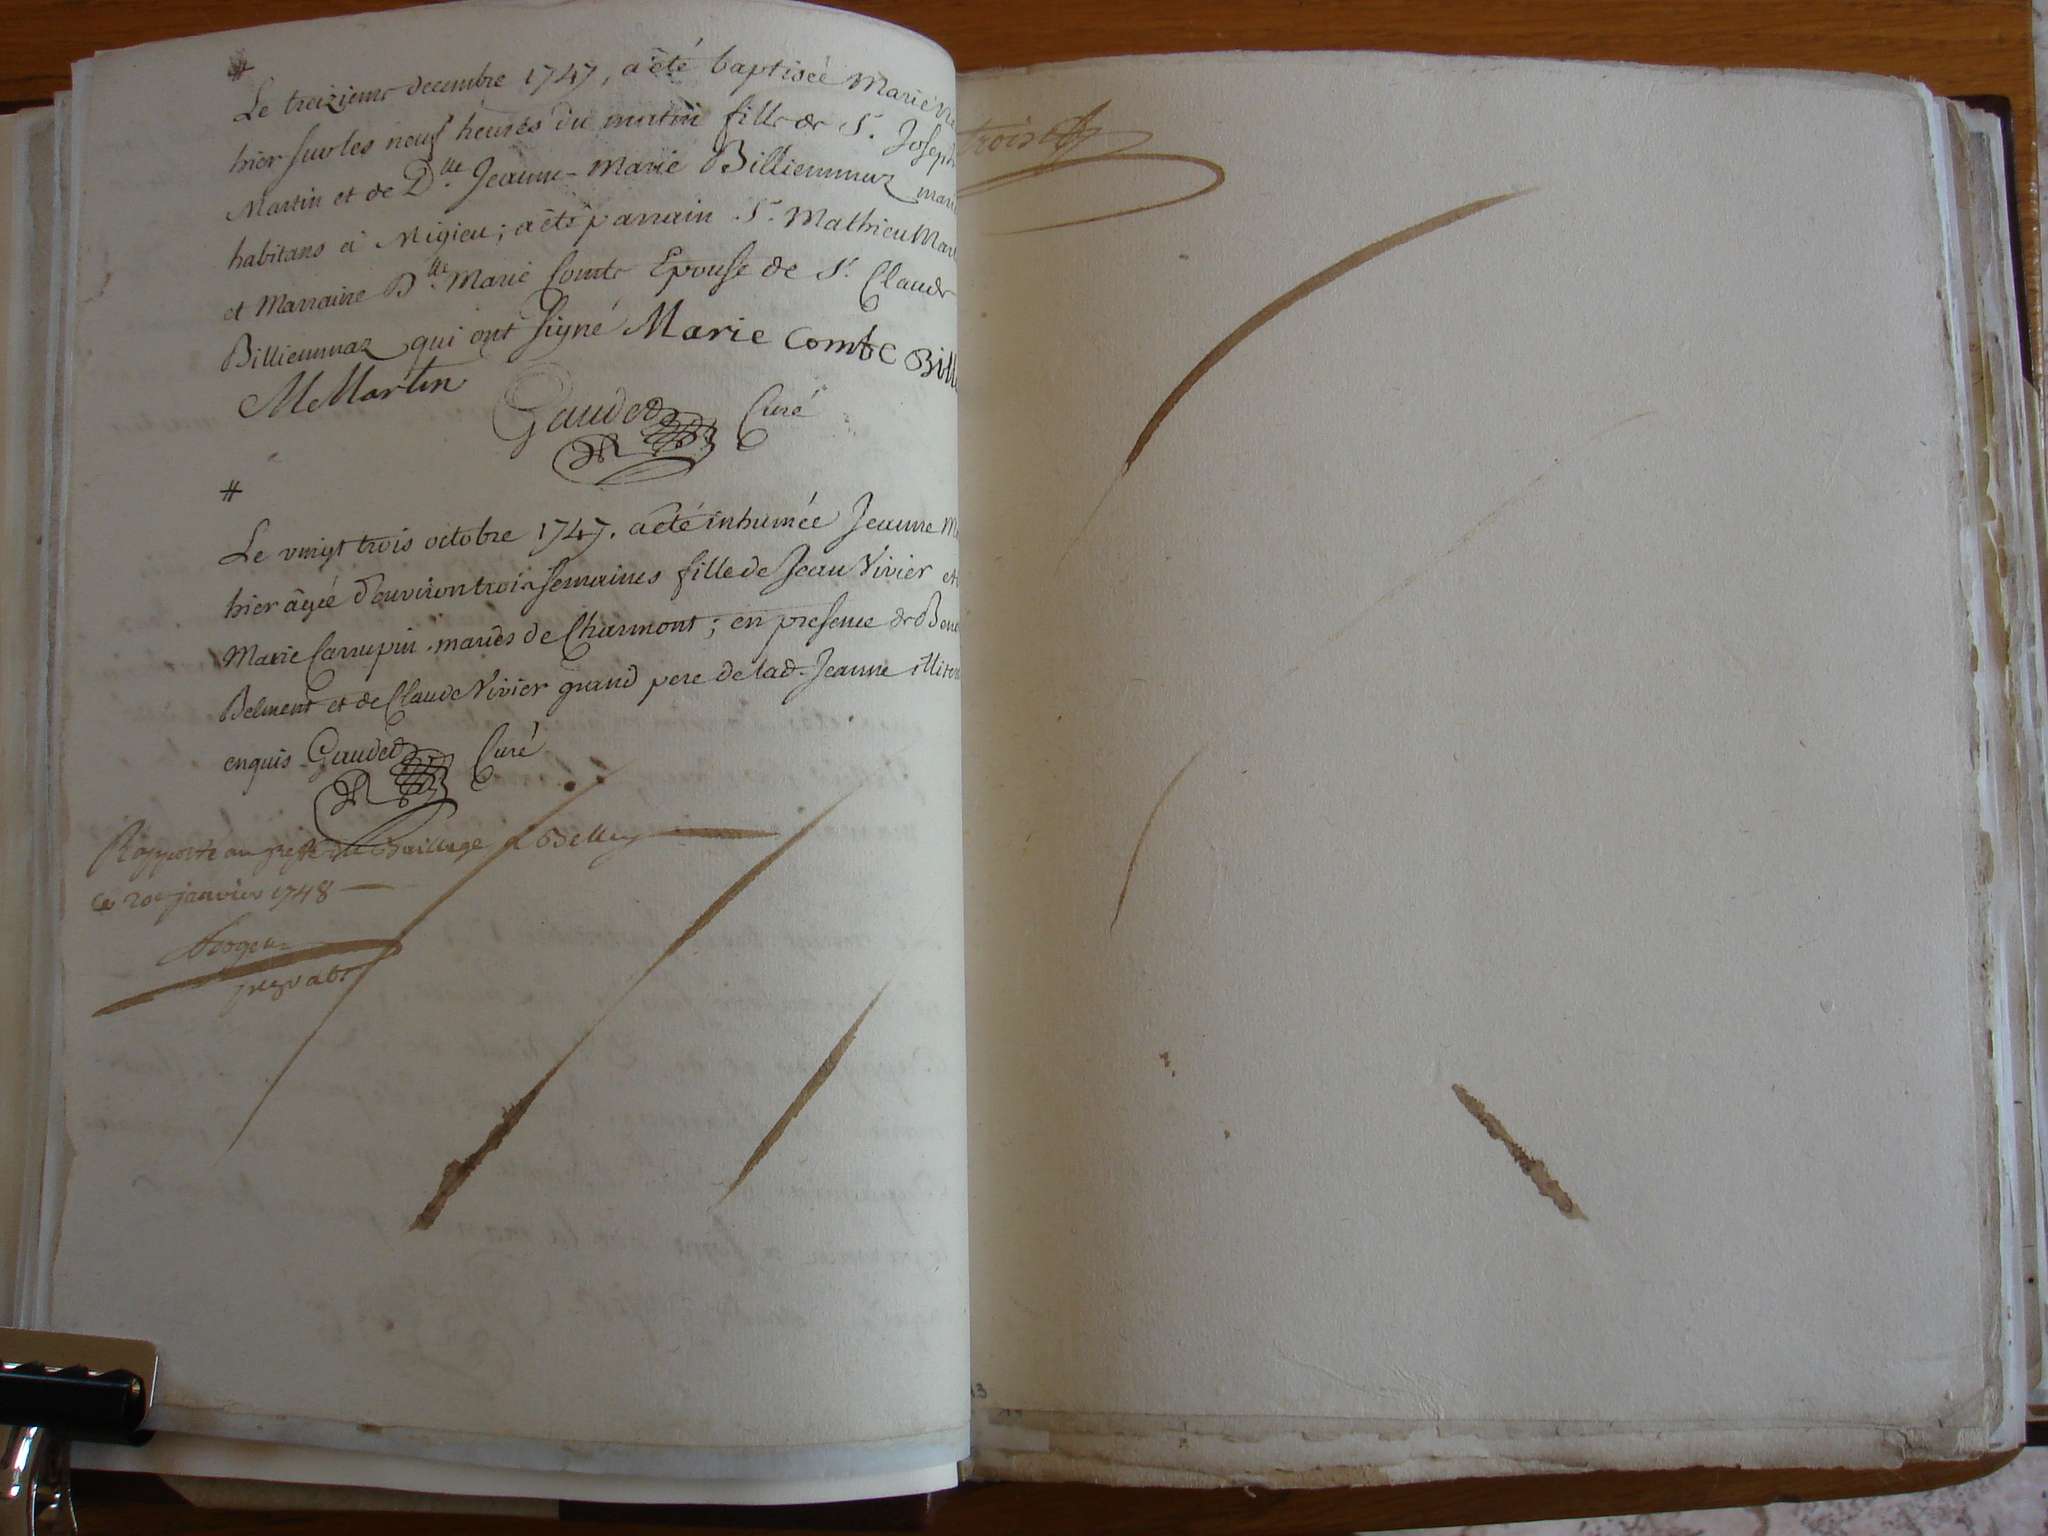 #
Le treizieme decembre 1747, a été baptisée Marie
hier sur les neuf heures du matin fille de Sr. Joseph
Martin et de Dlle Jeanne-Marie Billiemmaz mari
habitans à Migieu; a été parrain Sr. Mathieu Mar
et Marraine Dlle Marie Comte Epouse de Sr. Claude
Billiemmaz qui ont signé Marie Comte Bill
M Martin Gaudet Curé
#
Le vingt trois octobre 1747. a été inhumée Jeanne
hier âgée d'environ trois semaines fille de Jean Vivier et
Marie Carrupin mariés de Charmont; en presence de Bene
Belment et de Claude Vivier grand pere de lad. Jeanne illiter
enquis Gaudet Curé
Rapporté au greffe du Bailliage de Belley
ce 20e janvier 1748
trois